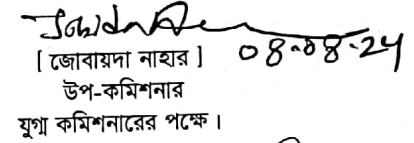 ০৪-০৪-২৪
[ জোবায়দা নাহার ]
উপ-কমিশনার
যুগ্ম কমিশনারের পক্ষে।